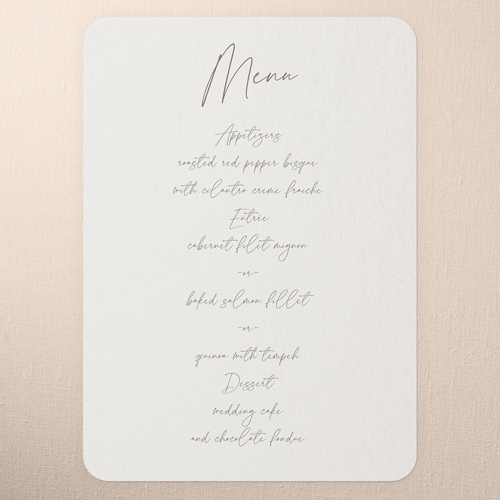 Menu
Appetizers
roasted red pepper bisque
with cilantro creme fraiche
Entrée
cabernet filet mignon
-or-
baked salmon fillet
-or-
quinoa with tempeh
Dessert
wedding cake
and chocolate fondue